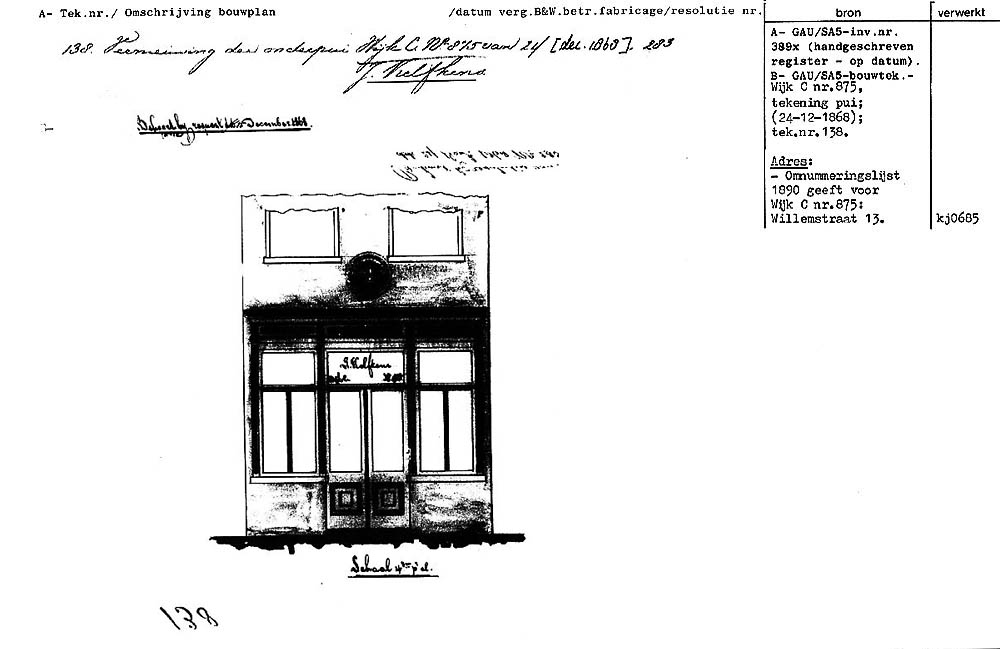 A- Tek.nr./ Omschrijving bouwplan /datum verg.B&W.betr.fabricage/resolutie nr.
bron
verwerkt
138. Vernieuwing der onderpui Wijk C. No 875 van 24 [dec. 1868]. 283
J. Kelfkens
A- GAU/SA5-inv.nr.
389x (handgeschreven
register - op datum).
B- GAU/SA5-bouwtek.-
Wijk C nr.875,
tekening pui;
(24-12-1868);
tek.nr.138.
Adres:
- Omnummeringslijst
1890 geeft voor
Wijk C nr.875:
Willemstraat 13.
kj0685
Behoort bij request December 1868.
J. Kelfkens
Schaal
138